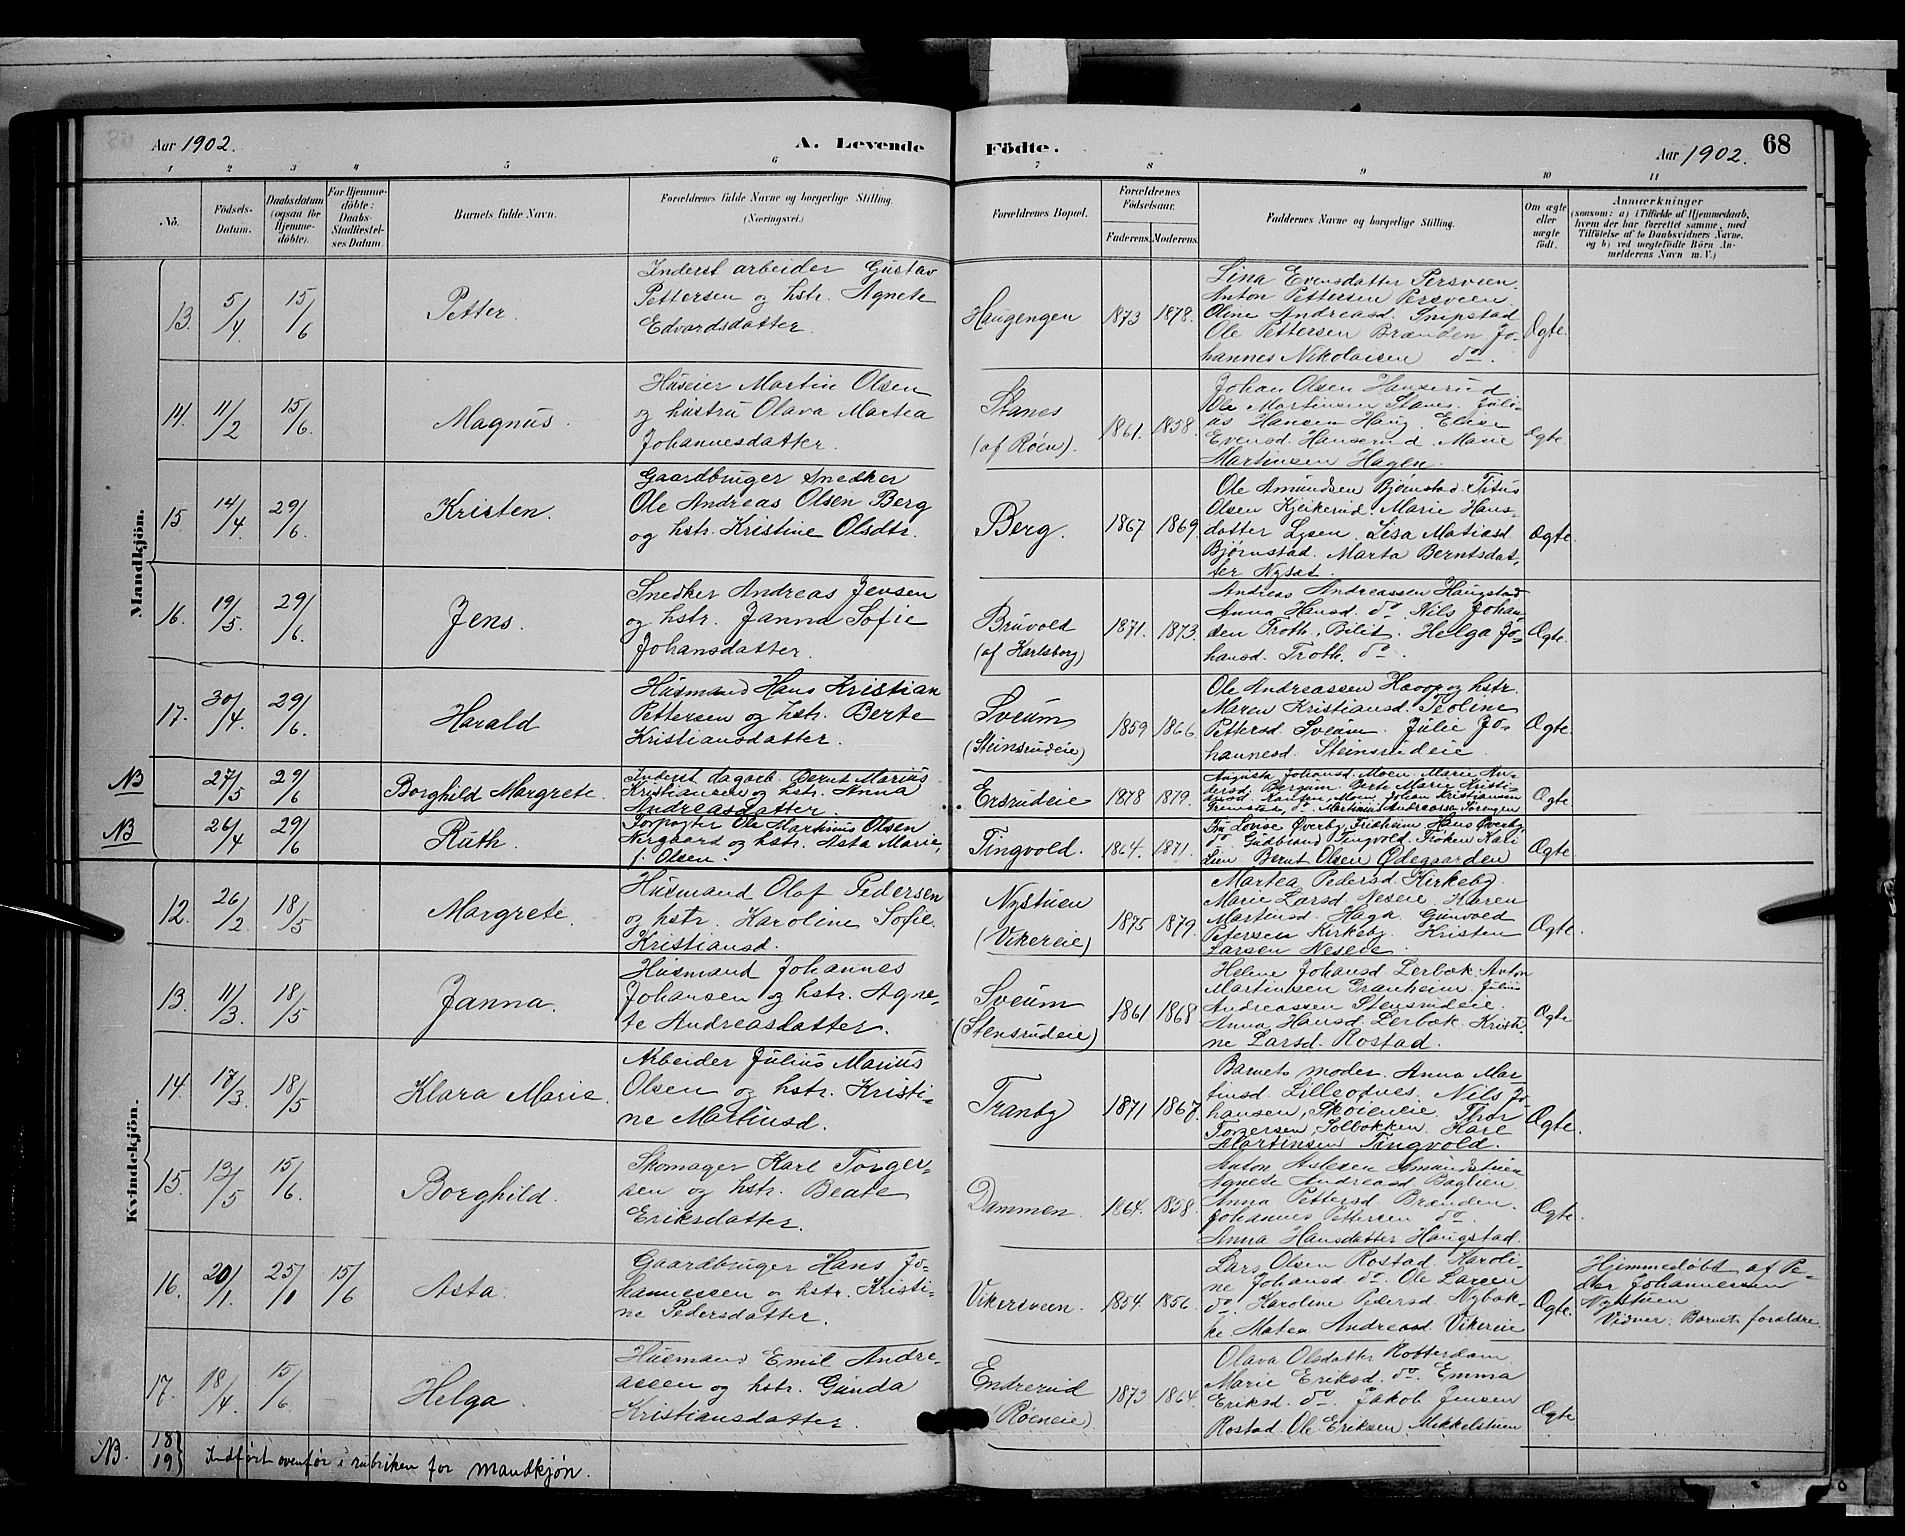 Aar 1902.
A. Levende Födte.
Aar 1902.
68
1 2 3 4 5 6 7 8 9 10 11
No.
Födsels-
Datum.
Daabsdatum
(ogsaa for
Hjemme-
döbte).
For Hjemme-
döbte:
Daabs-
Stadfæstel-
ses Datum.
Barnets fulde Navn.
Forældrenes fulde Navne og borgerlige Stilling.
(Næringsvei.)
Forældrenes Bopæl.
Forældrenes
Födselsaar.
Faderens. Moderens.
Faddernes Navne og borgerlige Stilling.
Om ægte
eller
uægte
födt.
Anmærkninger
(saasom: a) i Tilfælde af Hjemmedaab,
hvem der har forrettet samme, med
Tilföielse af to Daabsvidners Navne,
og b) ved uægtefödte Börn An-
melderens Navn m. V.)
Mandkjön.
13. 5/4 15/6
Petter.
Inderst arbeider Gustav
Pettersen og hstr. Agnete
Edvardsdatter.
Haugengen
1873 1878.
Lina Evensdatter Persveen
Anton Pettersen Persveen.
Oline Andreasd. Snipstad
Ole Pettersen Brænden Jo-
hannes Nikolaisen do.
Ægte.
14. 11/2 15/6.
Magnus.
Huseier Martin Olsen
og hustru Olava Martea
Johannesdatter.
Stanes
(af Røen).
1861. 1858.
Johan Olsen Hanserud
Ole Martinsen Stanes. Juli-
us Hansen Haug. Elise
Evensd. Hanserud. Marie
Martinsen Hagen.
Ægte.
15 14/4. 29/6.
Kristen.
Gaardbruger Snedker
Ole Andreas Olsen Berg
og hstr. Kristine Olsdtr.
Berg.
1867 1869.
Ole Amundsen Bjørnstad. Titus
Olsen Kjeikerud. Marie Hans-
datter Lysen. Lisa Matiasd.
Bjørnstad. Marta Berntsdat-
ter Nyset.
Ægte
16. 19/5. 29/6.
Jens.
Snedker Andreas Jensen
og hstr. Janna Sofie
Johansdatter.
Bruvold
(af Karlsborg)
1871. 1873.
Andreas Andreassen Haugstad
Anna Hansd. do. Nils Johan-
sen Troth, Bilit. Helga Jo-
hansd. Troth, do.
Ægte.
17. 30/4. 29/6.
Harald
Husmand Hans Kristian
Pettersen og hstr. Berte
Kristiansdatter.
Sveum
(Steinsrudeie)
1859 1866.
Ole Andreassen Haug og hstr.
Maren Kristiansd. Teoline
Pettersd. Sveum. Julie Jo-
hannesd. Steinsrudeie
Ægte.
NB 27/5 29/6
Borghild Margrete.
Inderst dagarb. Bernt Marius
Kristiansen og hstr. Anna
Andreasdatter
Ersrudeie
1878 1879.
Augusta Johansd. Moen. Marie An-
dersd. Bergum. Berte Marie Kristi-
Ægte.
NB 26/4 29/6
Ruth.
Forpagter Ole Martinus Olsen
Nergaard og hstr. Asta Marie,
f. Olsen.
Tingvold.
1864. 1871.
Fru Lovise Øverby, Fridheim. Hans Øverby
do. Gudbrand Tingvold. Frøken Kari
Lien. Bernt Olsen Ødegaarden
Ægte
Kvindekjön.
12. 26/2 18/5
Margrete.
Husmand Olaf Pedersen
og hstr. Karoline Sofie
Kristiansd.
Nystuen
(Vikereie)
1875 1879.
Martea Pedersd. Kirkeby.
Marie Larsd. Neseie. Karen
Martinsd. Haga. Gunvold
Petersen Kirkeby. Kristen
Larsen Neseie.
Ægte.
13. 11/3. 18/5
Janna.
Husmand Johannes
Johansen og hstr. Agne-
te Andreasdatter.
Sveum
(Stensrudeie)
1861 1868
Helene Johansd. Lerbæk. Anton
Martinsen Granheim. Julius
Andreassen Stensrudeie.
Anna Hansd. Lerbæk. Kristi-
ne Larsd. Rostad.
Ægte
14. 17/3. 18/5
Klara Marie.
Arbeider Julius Marius
Olsen og hstr. Kristi-
ne Martinsd.
Tranby
1871 1867.
Barnets moder. Anna Mar-
tinsd. Lilleofnes. Nils Jo-
hansen, Skøieneie. Thor
Torgersen, Solbakken. Karl
Martinsen Tingvold.
Ægte.
15. 13/5 15/6.
Borghild.
Skomager Karl Torger-
sen og hstr. Beate
Eriksdatter.
Dammen.
1864. 1858.
Anton Aslesen Amundstuen
Agnete Andreasd. Baglien.
Anna Pettersd. Brænden.
Johannes Pettersen do.
Anna Hansdatter Haugstad.
Ægte.
16. 20/1. 25/1 15/6
Asta.
Gaardbruger Hans Jo-
hannessen og hstr. Kristi-
ne Pedersdatter.
Vikersveen.
1854. 1856.
Lars Olsen Rostad. Karoli-
ne Johansd. do. Ole Larsen
do. Karoline Pedersd. Nybak-
ke. Matea Andreasd. Vikereie
Ægte.
Hjemmedøbt af Pe-
der Johannessen
Nystuen
Vidner: Barnets forældre
17. 18/4. 15/6.
Helga.
Husmand Emil Andre-
assen og hstr. Gunda
Kristiansdatter.
Endrerud
(Røeneie)
1873 1864.
Olava Olsdatter Rotterdam
Marie Eriksd. do. Emma
Eriksd. do. Jakob Jensen
Rostad. Ole Eriksen Mikkelstuen
Ægte
NB. 18 19} Indført ovenfor i rubriken for mandkjøn.